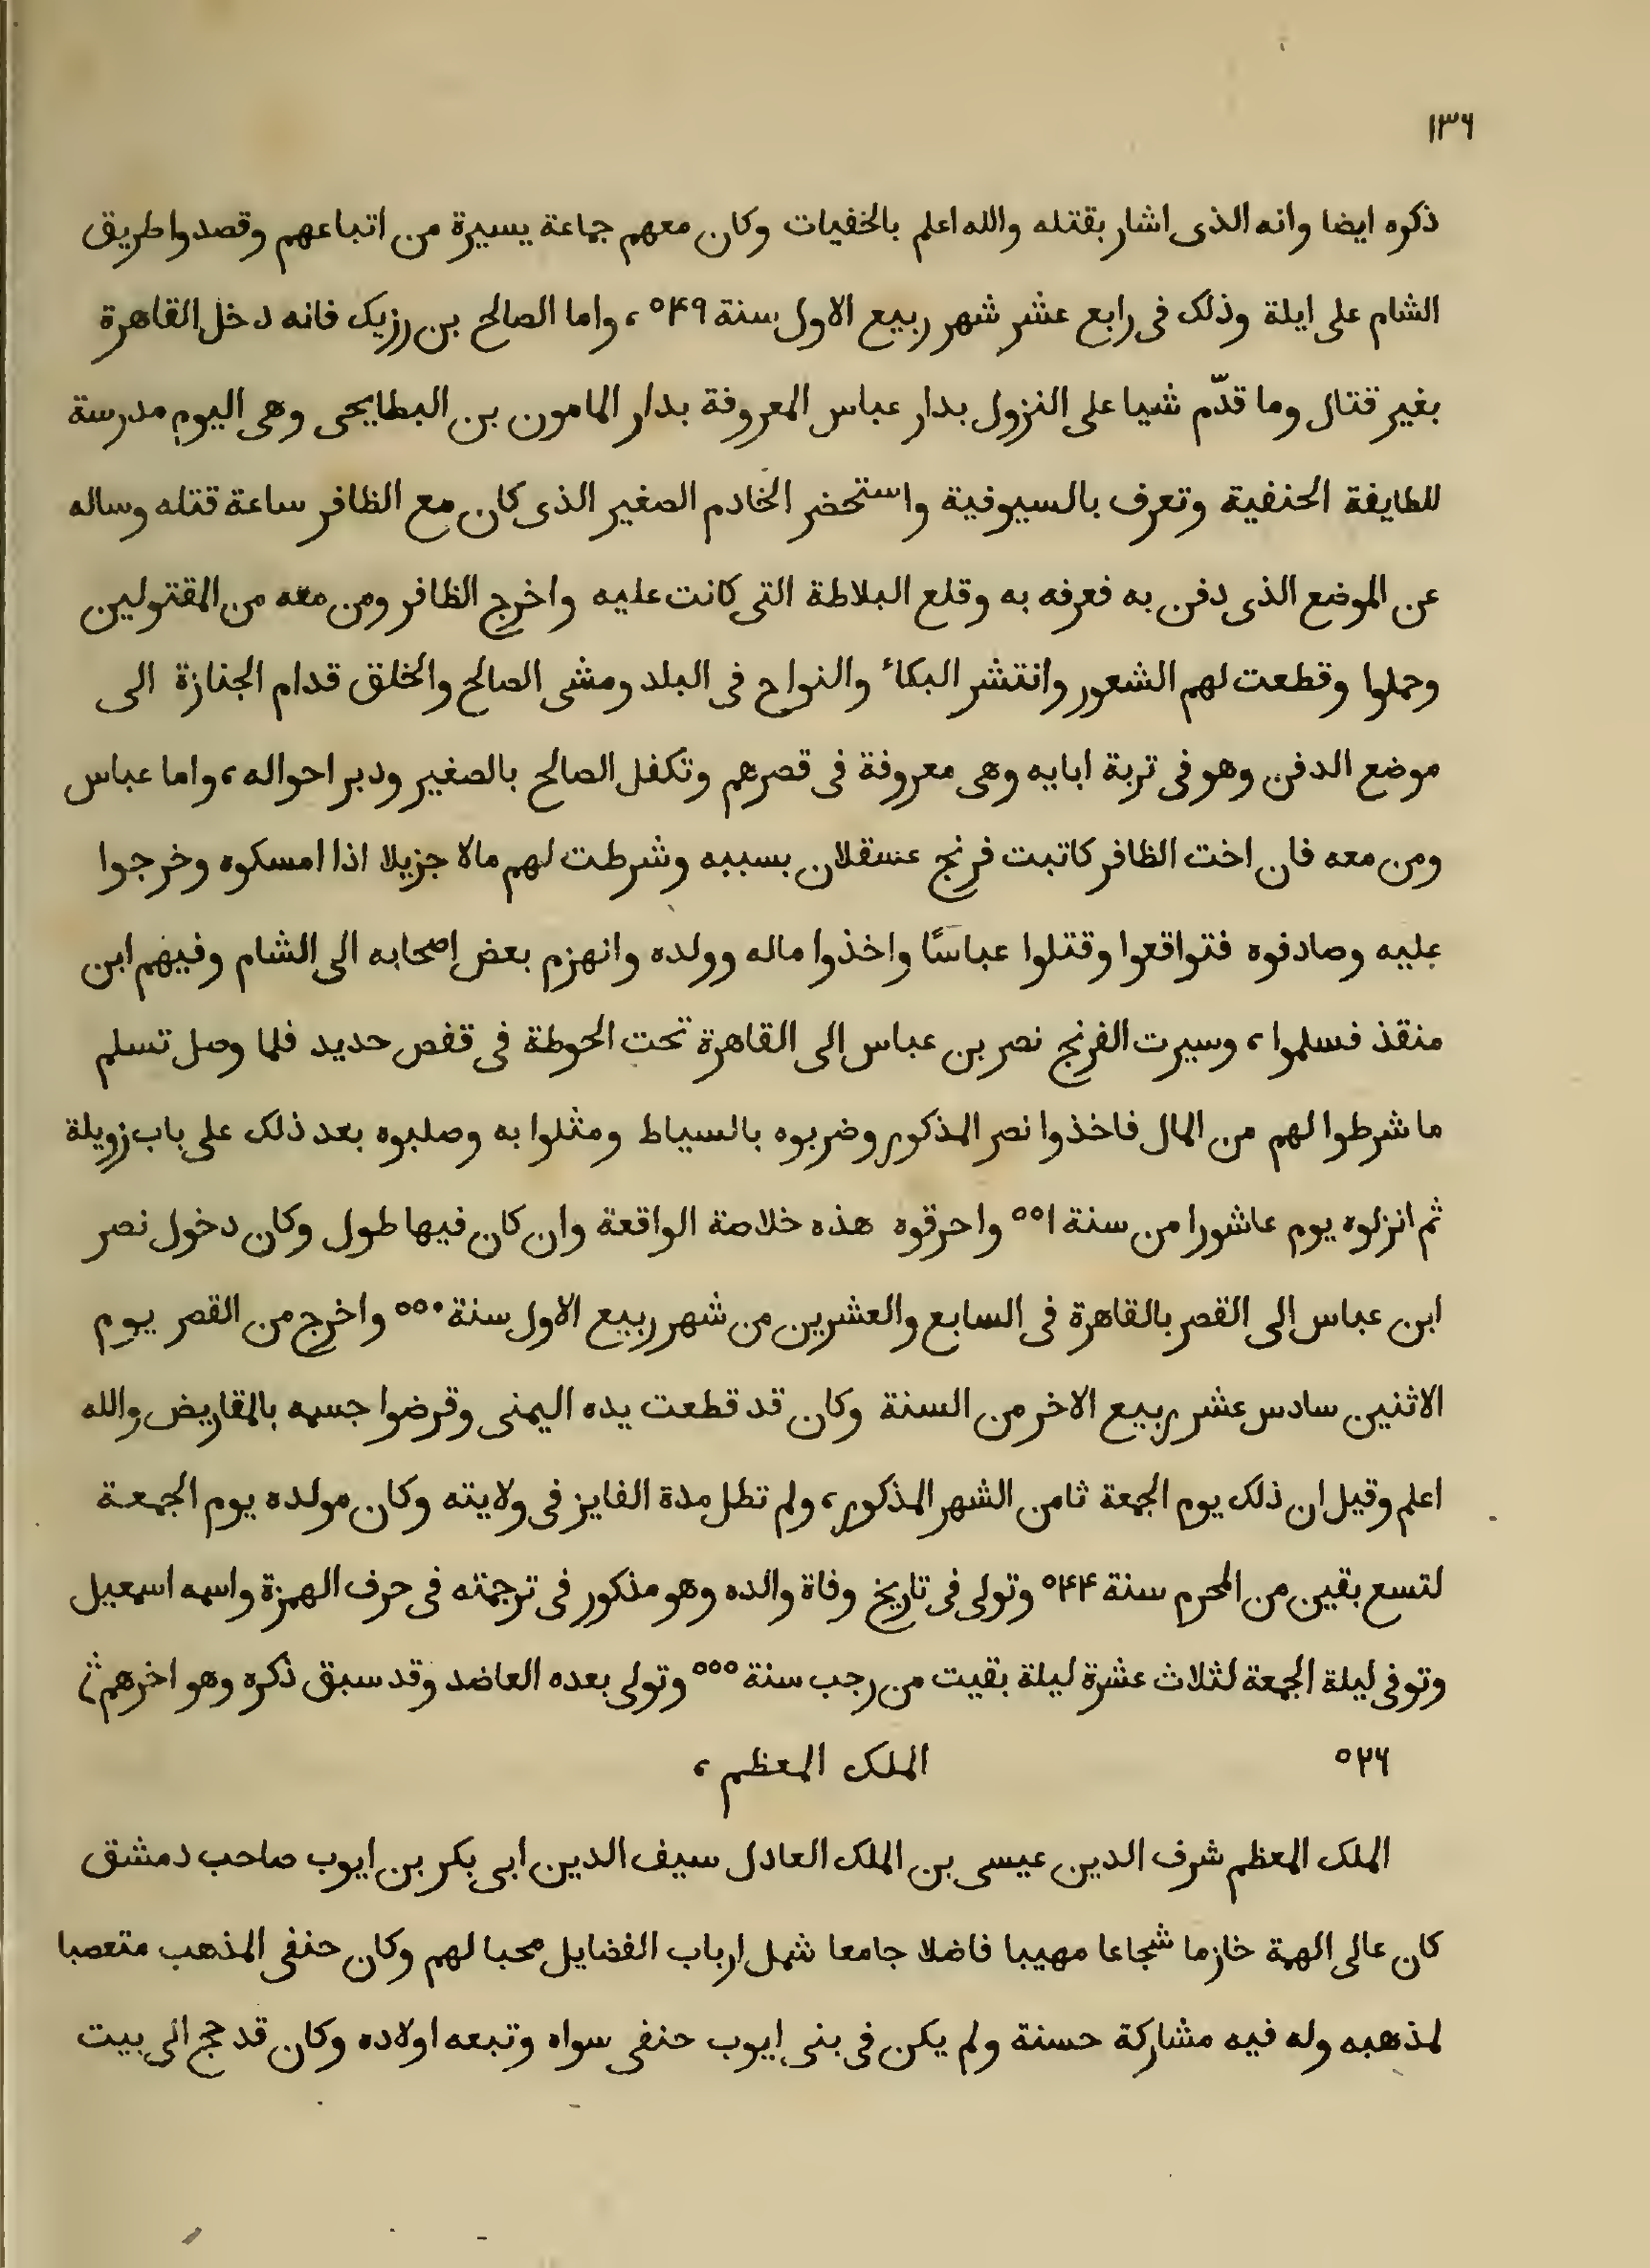 ١٣٦
ذكره ايضا وانه الذى اشار بقتله والله اعلم بالخفيات وكان معهم جماعة يسيرة من اتباعهم وقصدوا طريق
الشام على ايلة وذلك فى رابع عشر شهر ربيع الاول سنة ٥۴٩ ، واما الصالح بن رزيك فانه دخل القاهرة
بغير قتال وما قدّم شيا على النزول بدار عباس المعروفة بدار المامون بن البطايحى وهى اليوم مدرسة
للطايفة الحنفية وتعرف بالسيوفية واستحضر الخادم الصغير الذى كان مع الظافر ساعة قتله وساله
عن الموضع الذى دفن به فعرفه به وقلع البلاطة التى كانت عليه واخرج الظافر ومن معه من المقتولين
وحملوا وقطعت لهم الشعور وانتشر البكاء والنواح فى البلد ومشى الصالح والخلق قدام الجنازة الى
موضع الدفن وهو فى تربة ابايه وهى معروفة فى قصرهم وتكفل الصالح بالصغير ودبر احواله ، واما عباس
ومن معه فان اخت الظافر كاتبت فرنج عسقلان بسببه وشرطت لهم مالا جزيلا اذا امسكوه وخرجوا
عليه وصادفوه فتواقعوا وقتلوا عباسًا واخذوا ماله وولده وانهزم بعض اصحابه الى الشام وفيهم ابن
منقذ فسلموا ، وسيرت الفرنج نصر بن عباس الى القاهرة تحت الحوطة فى قفص حديد فلما وصل تسلم
ما شرطوا لهم من المال فاخذوا نصر المذكور وضربوه بالسياط ومثلوا به وصلبوه بعد ذلك على باب زويلة
ثم انزلوه يوم عاشورا من سنة ٥٥١ واحرقوه هذه خلاصة الواقعة وان كان فيها طول وكان دخول نصر
ابن عباس الى القصر بالقاهرة فى السابع والعشرين من شهر ربيع الاول سنة ٥٥٠ واخرج من القصر يوم
الاثنين سادس عشر ربيع الاخر من السنة وكان قد قطعت يده اليمنى وقرضوا جسمه بالمقاريض والله
اعلم وقيل ان ذلك يوم الجمعة ثامن الشهر المذكور ، ولم تطل مدة الفايز فى ولايته وكان مولده يوم الجمعة
لتسع بقين من المحرم سنة ٥۴۴ وتولى فى تاريخ وفاة والده وهو مذكور فى ترجمته فى حرف الهمزة واسمه اسمعيل
وتوفى ليلة الجمعة لثلاث عشرة ليلة بقيت من رجب سنة ٥٥٥ وتولى بعده العاضد وقد سبق ذكره وهو اخرهم
٥٢٦ الملك المعظم ،
الملك المعظم شرف الدين عيسى بن الملك العادل سيف الدين ابى بكر بن ايوب صاحب دمشق
كان عالى الهمة خازما شجاعا مهيبا فاضلا جامعا شمل ارباب الفضايل محبا لهم وكان حنفى المذهب متعصبا
لمذهبه وله فيه مشاركة حسنة ولم يكن فى بنى ايوب حنفى سواه وتبعه اولاده وكان قد حج الى بيت